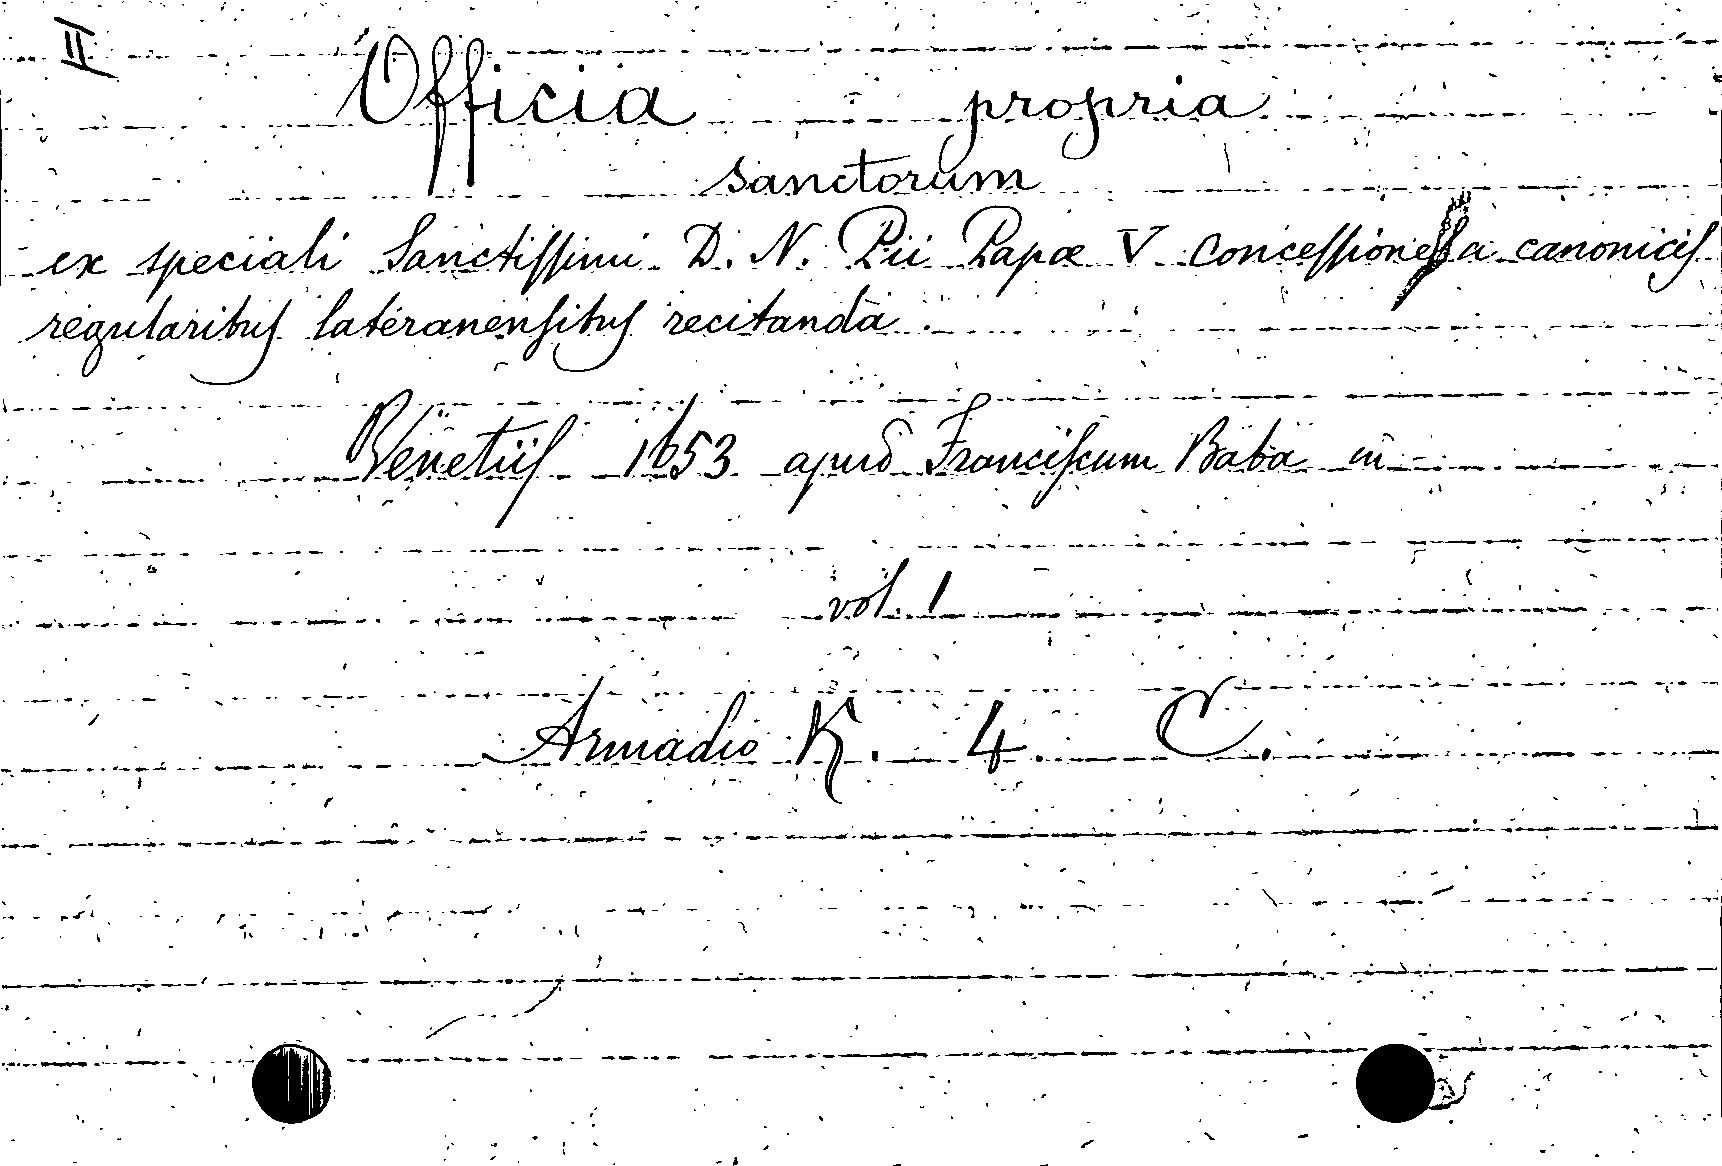 II
Officia propria
sanctorum
ex speciali Sanctissimi D. N. Pii Papæ V concessione a canonicis
regularibus lateranensibus recitanda.
Venetiis 1653 apud Franciscum Baba in
vol. 1
Armadio K. 4. C.